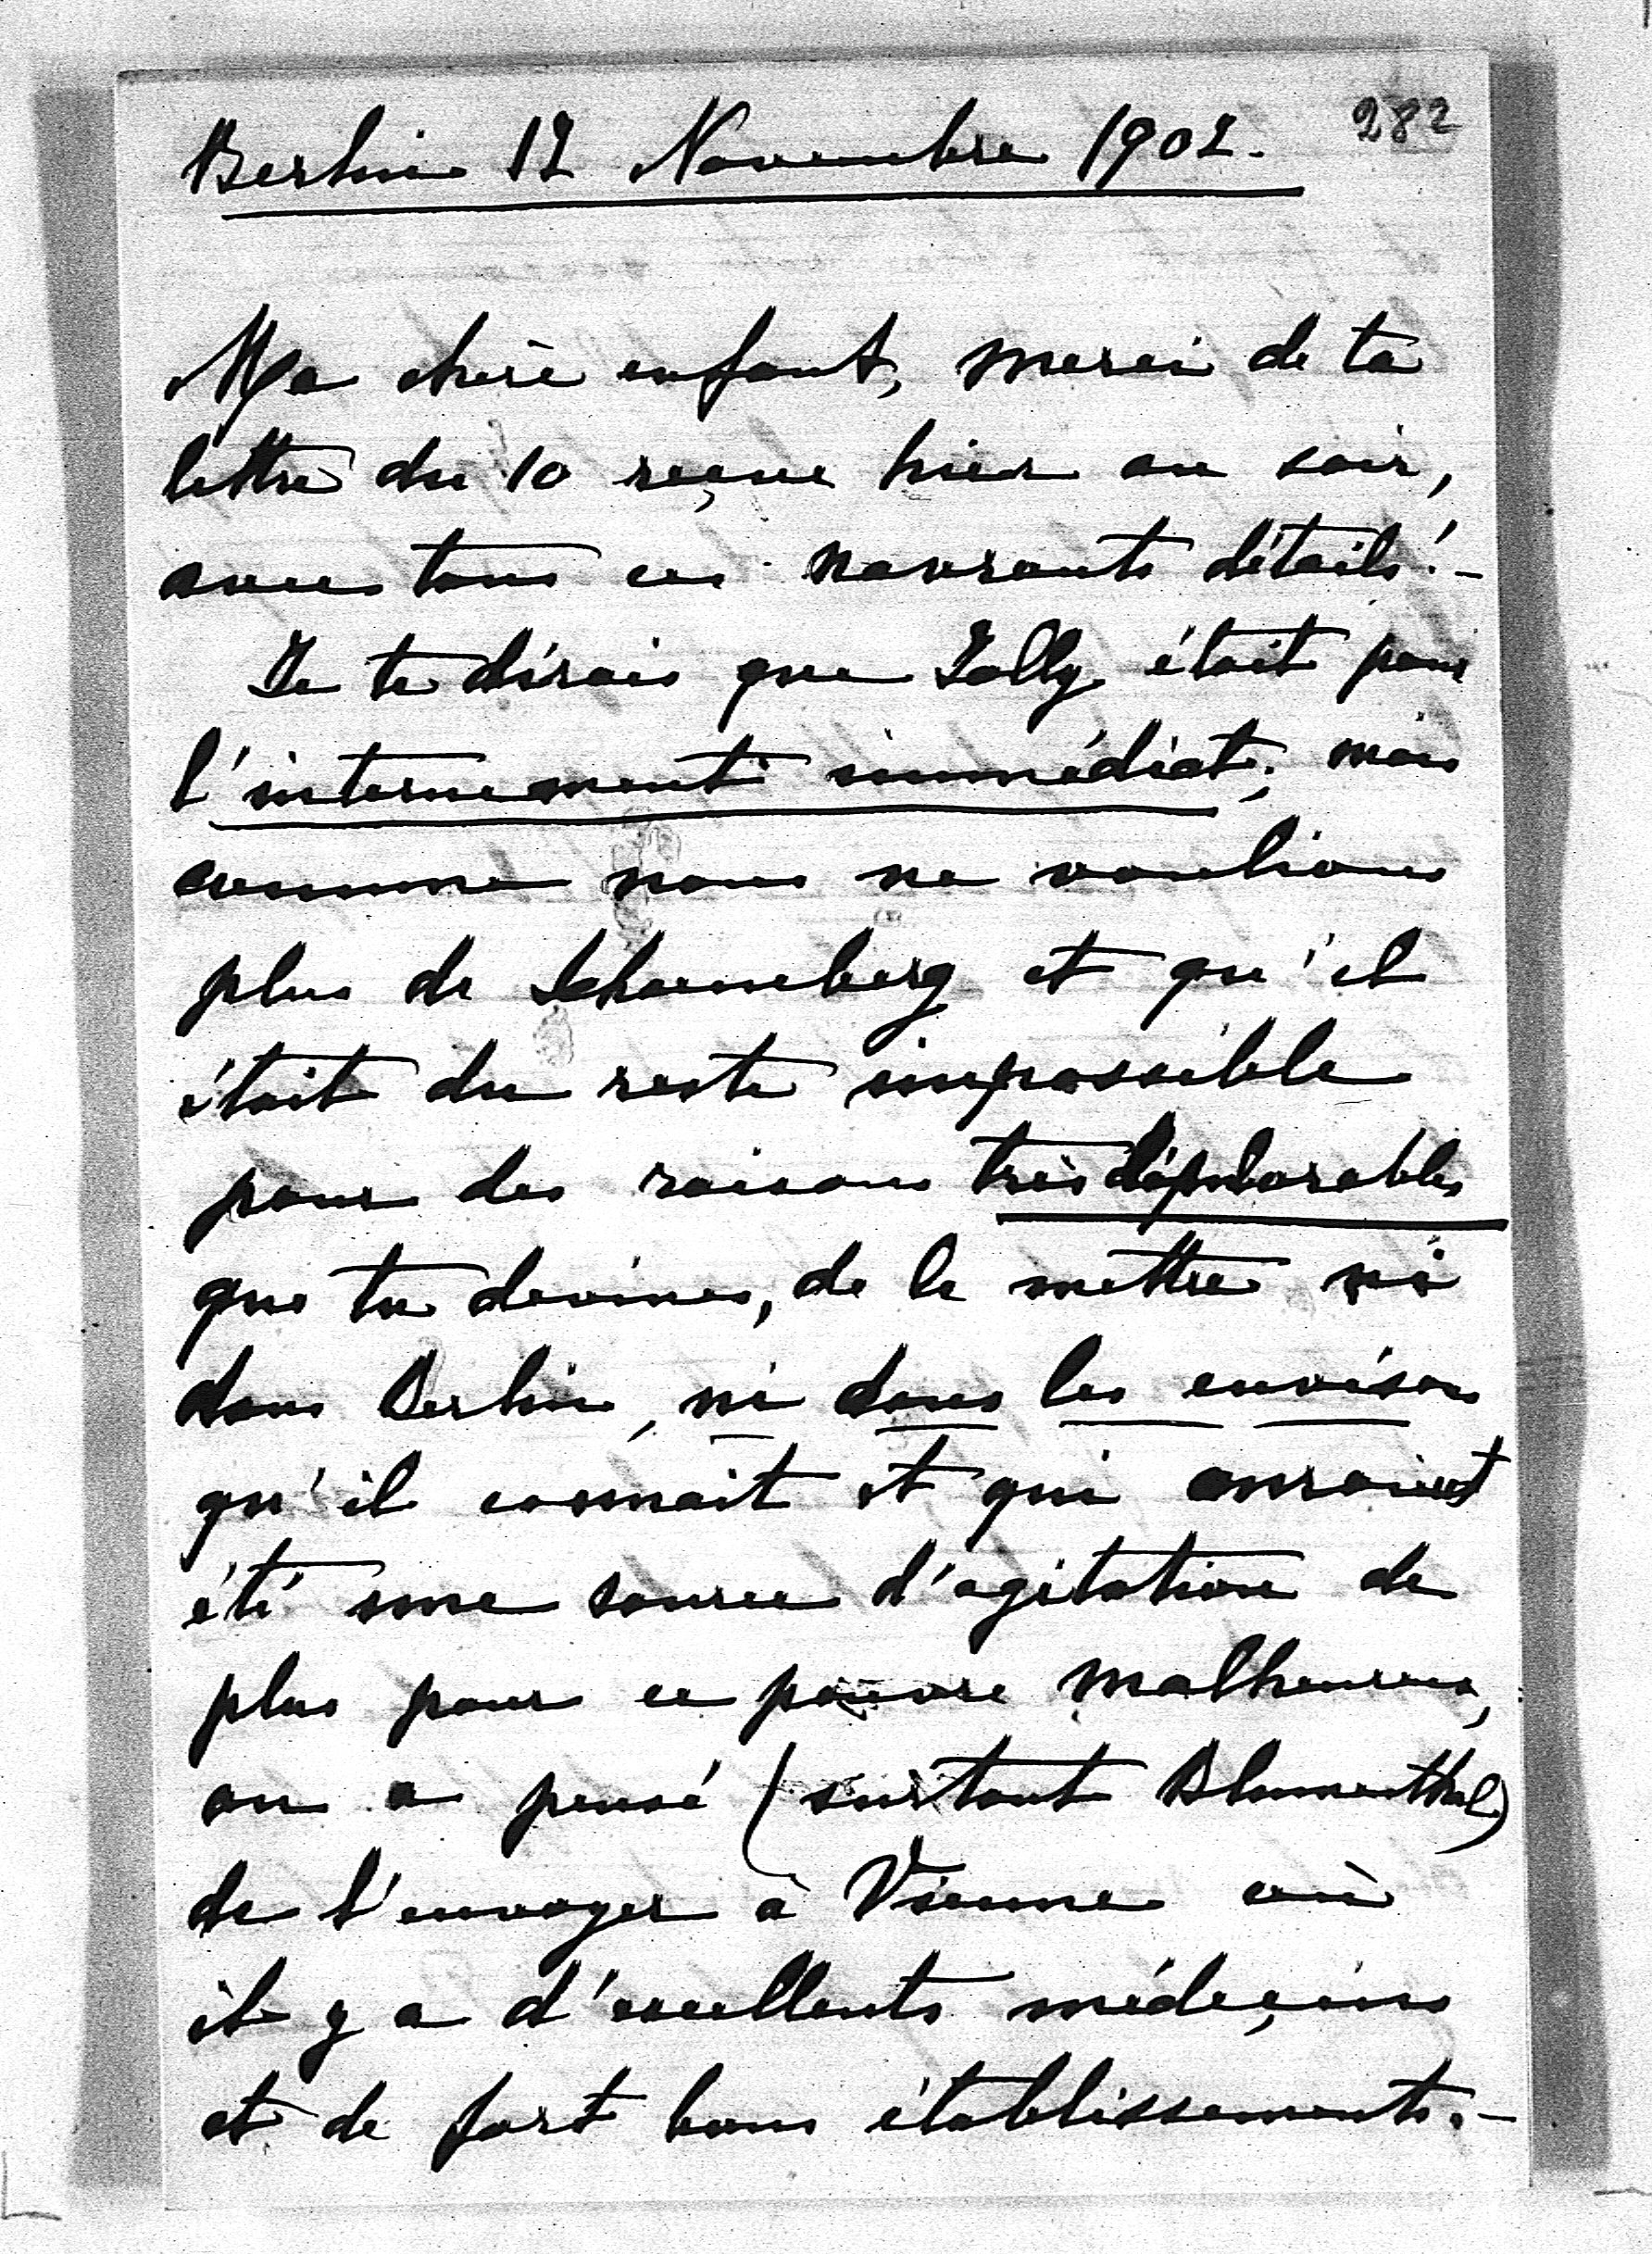 282
Berlin 12 Novembre 1902.
Ma chère enfant, merci de ta
lettre du 10 reçue hier au soir,
avec tous ces navrants détails! -
Je te dirais que Jolly était pour
l'internement immédiat; mais
comme nous ne voulions
plus de Schoeneberg et qu'il
était du reste impossible
pour des raisons très déplorables
que tu devines, de le mettre ni
dans Berlin, ni dans les environs
qu'il connait et qui auraient
été une source d'agitation de
plus pour ce pauvre malheureux,
on a pensé (surtout Blumenthal)
de l'envoyer à Vienne où
il y a d'excellents médeçins
et de fort bons établissements. -